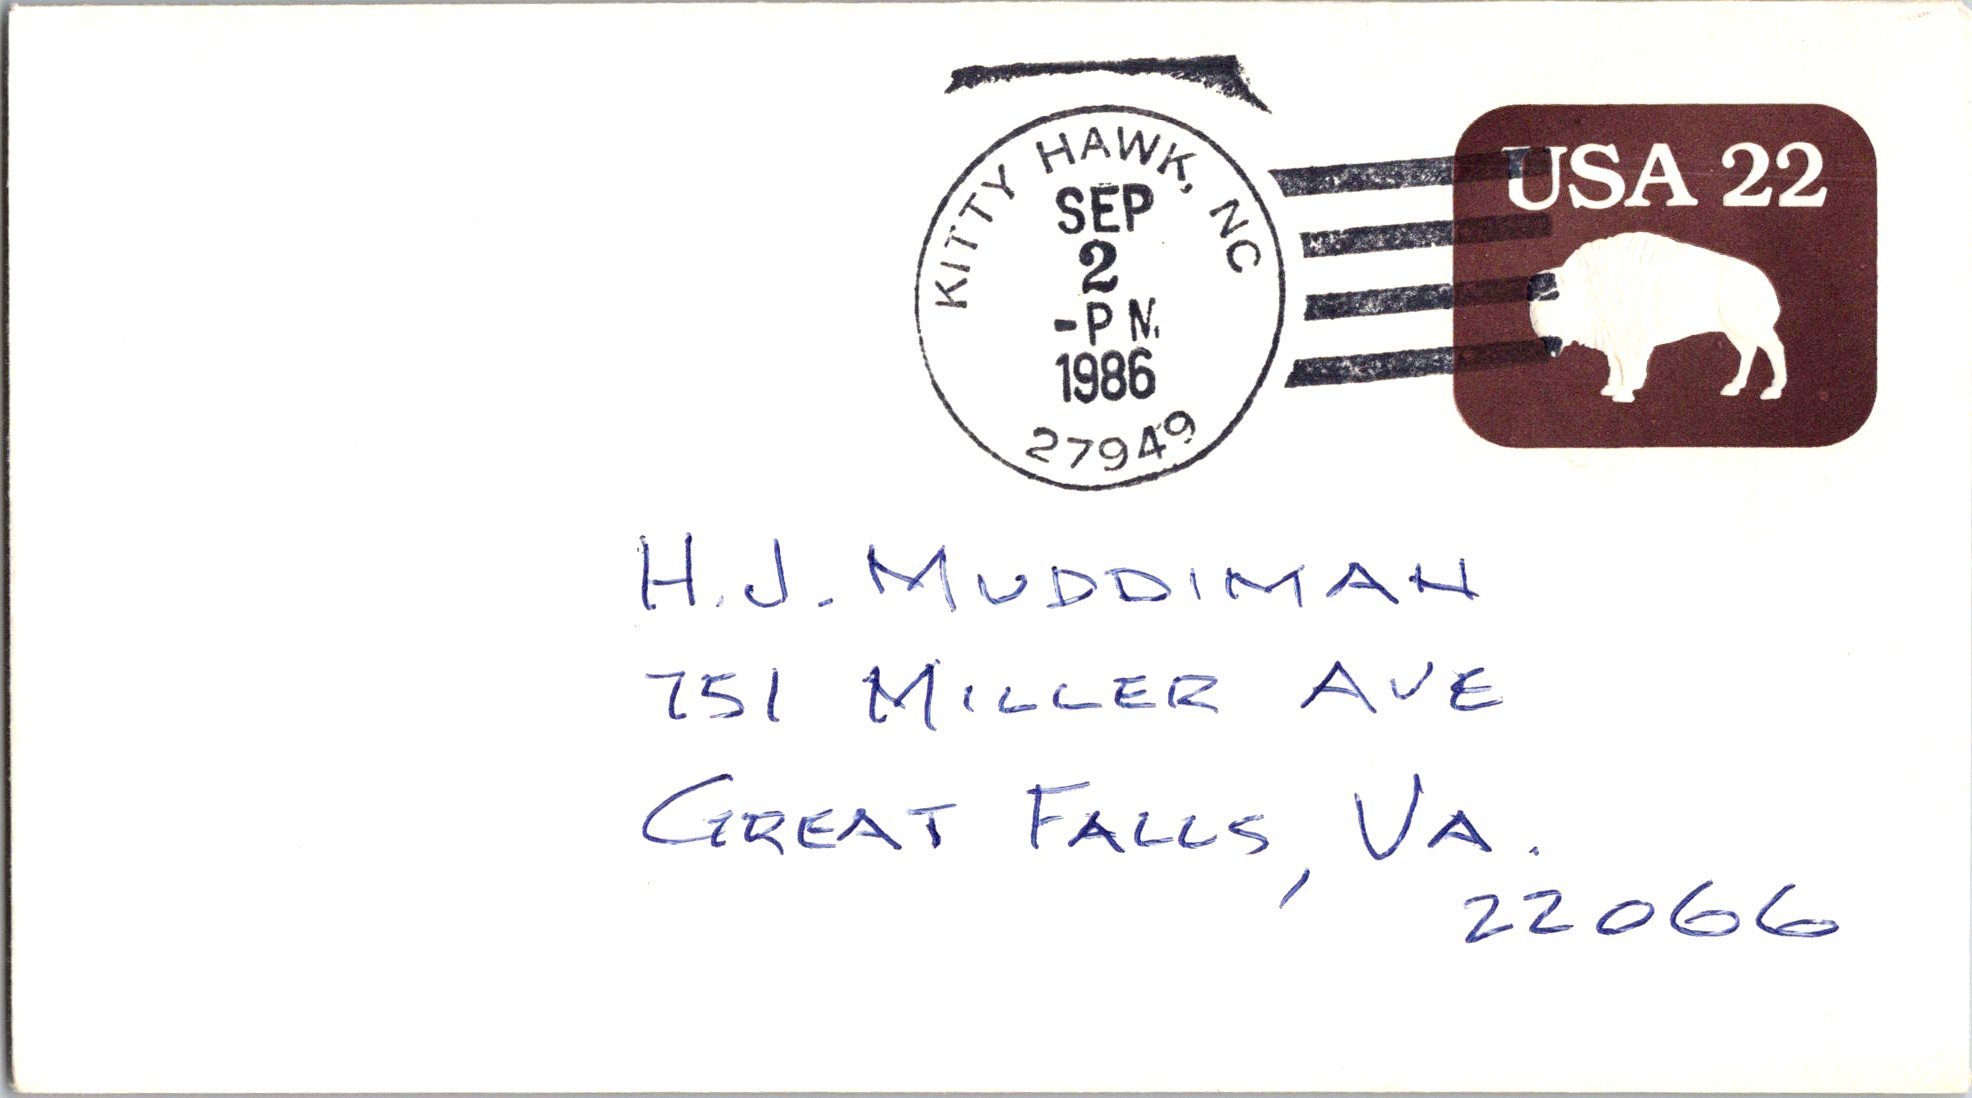 KITTY HAWK, NC
SEP
2
-PM
1986
27949
USA 22
H. J. MUDDIMAN
751 MILLER AVE
GREAT FALLS, VA.
22066